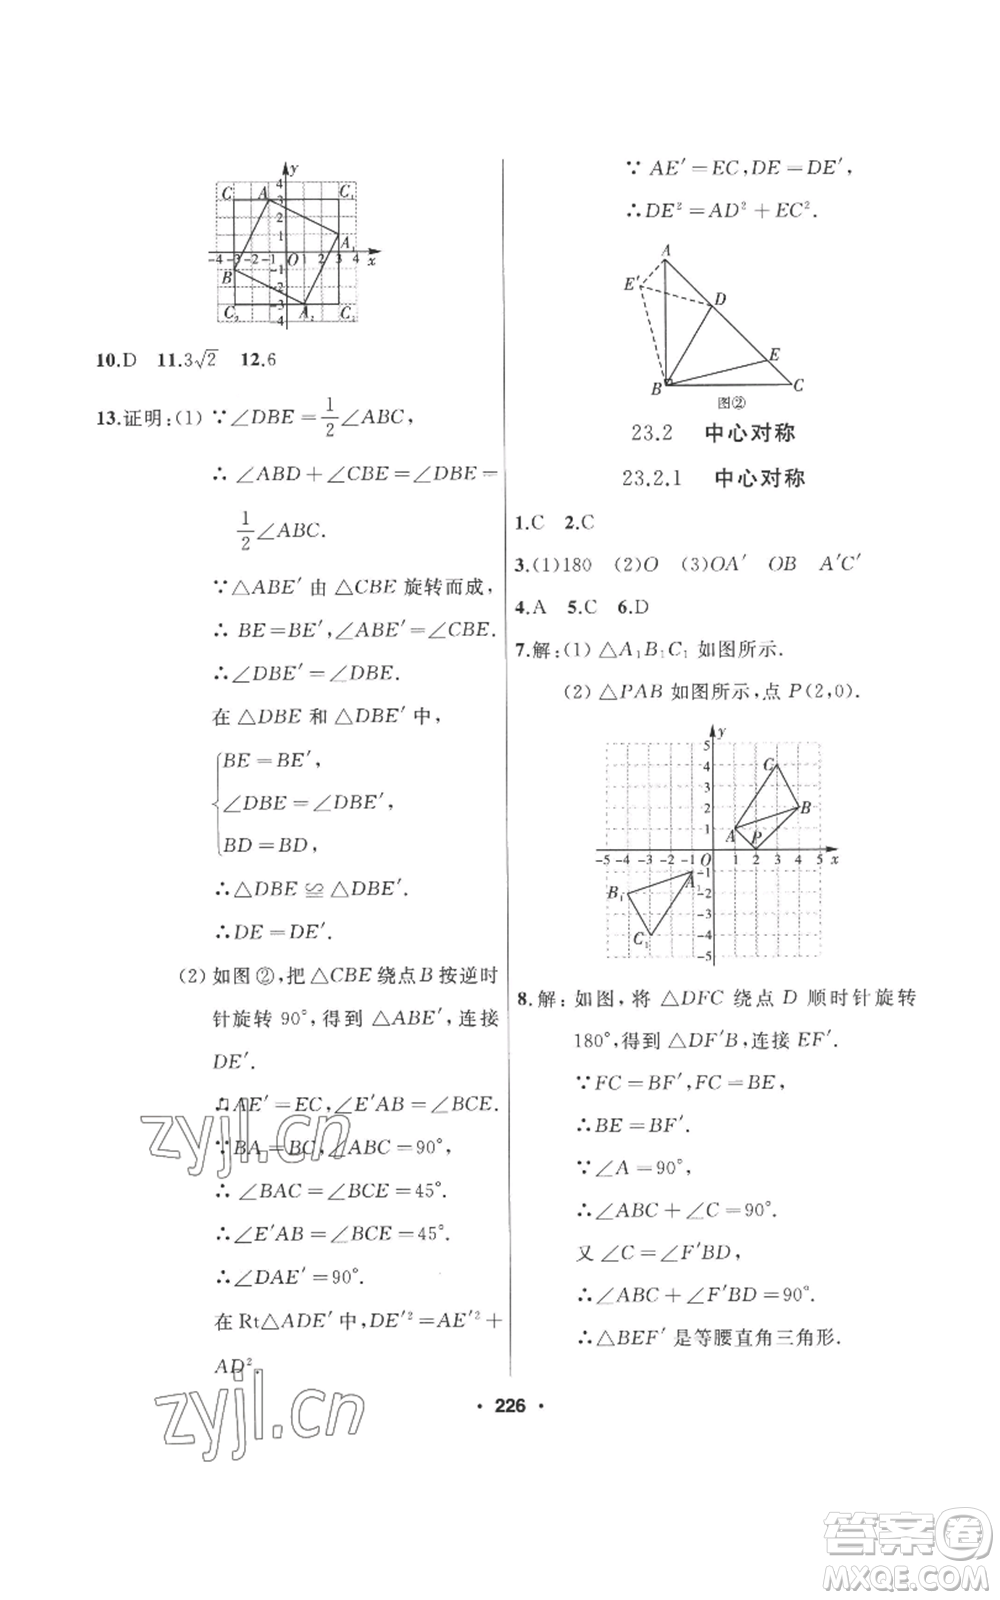 y
C A 4 C₁
3
2
1 A₁
-4 -3 -2 -1 O 1 2 3 4 x
B -1
-2
C₂ -3 A₂ C₃
-4
10.D 11.3√2 12.6
13.证明:(1) ∵∠DBE=1/2∠ABC,
∴∠ABD+∠CBE=∠DBE=
1/2∠ABC.
∵△ABE′由△CBE旋转而成,
∴BE=BE′,∠ABE′=∠CBE.
∴∠DBE′=∠DBE.
在△DBE和△DBE′中,
BE=BE′,
∠DBE=∠DBE′,
BD=BD,
∴△DBE≌△DBE′.
∴DE=DE′.
(2) 如图②,把△CBE绕点B按逆时
针旋转90°,得到△ABE′,连接
DE′.
∴AE′=EC,∠E′AB=∠BCE.
∵BA=BC,∠ABC=90°,
∴∠BAC=∠BCE=45°.
∴∠E′AB=∠BCE=45°.
∴∠DAE′=90°.
在Rt△ADE′中,DE′²=AE′²+
AD².
∵AE′=EC,DE=DE′,
∴DE²=AD²+EC².
A
E′
D
E
B C
图②
23.2 中心对称
23.2.1 中心对称
1.C 2.C
3.(1)180 (2)O (3)OA′ OB A′C′
4.A 5.C 6.D
7.解:(1)△A₁B₁C₁如图所示.
(2)△PAB如图所示,点P(2,0).
y
5
4 C
3
2 B
1 A P
-5 -4 -3 -2 -1 O 1 2 3 4 5 x
-1 A₁
B₁ -2
-3
C₁ -4
-5
8.解:如图,将△DFC绕点D顺时针旋转
180°,得到△DF′B,连接EF′.
∵FC=BF′,FC=BE,
∴BE=BF′.
∵∠A=90°,
∴∠ABC+∠C=90°.
又∠C=∠F′BD,
∴∠ABC+∠F′BD=90°.
∴△BEF′是等腰直角三角形.
· 226 ·
zyjl.cn
zyjl.cn
答案卷
MXQE.COM